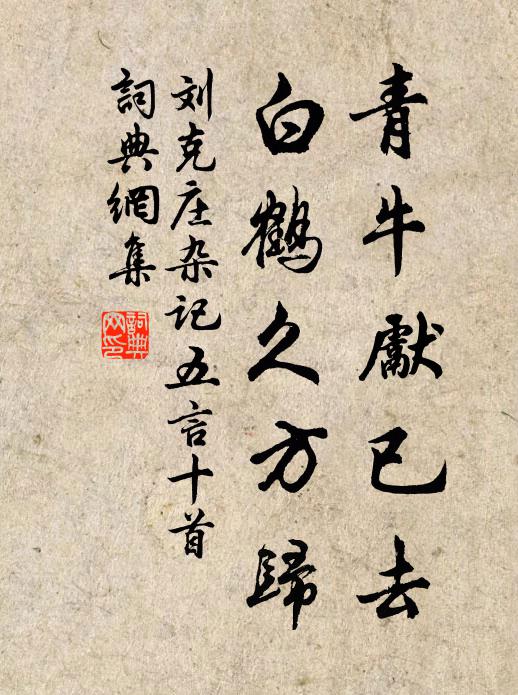 青牛獻已去
白鶴久方歸
刘克庄杂记五言十首
詞典網集
詞典网印